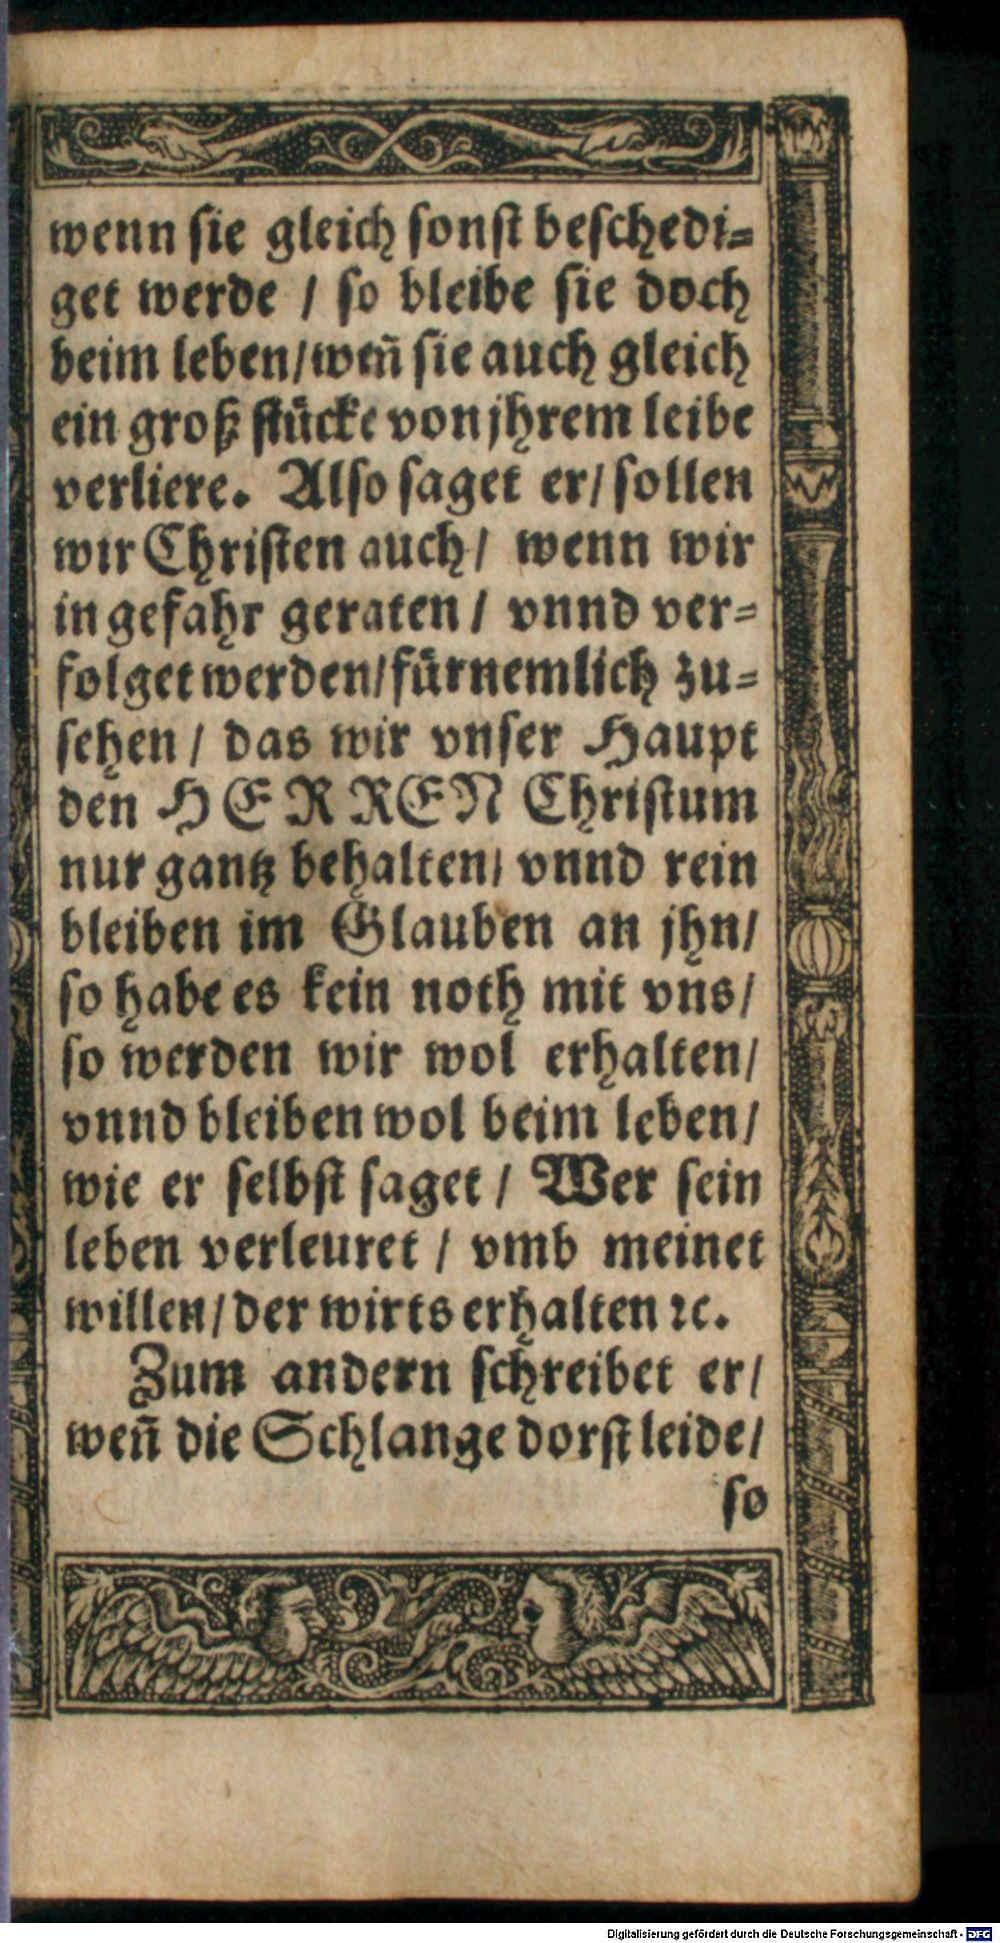 wenn sie gleich sonst beschedi-
get werde / so bleibe sie doch
beim leben/weñ sie auch gleich
ein groß stücke von jhrem leibe
verliere. Also saget er/ sollen
wir Christen auch/ wenn wir
in gefahr geraten / vnnd ver-
folget werden/fürnemlich zu-
sehen / das wir vnser Haupt
den HERREN Christum
nur gantz behalten/ vnnd rein
bleiben im Glauben an jhn/
so habe es kein noth mit vns/
so werden wir wol erhalten/
vnnd bleiben wol beim leben/
wie er selbst saget / Wer sein
leben verleuret / vmb meinet
willen/der wirts erhalten ꝛc.
Zum andern schreibet er/
weñ die Schlange dorst leide/
so
Digitalisierung gefördert durch die Deutsche Forschungsgemeinschaft - DFG